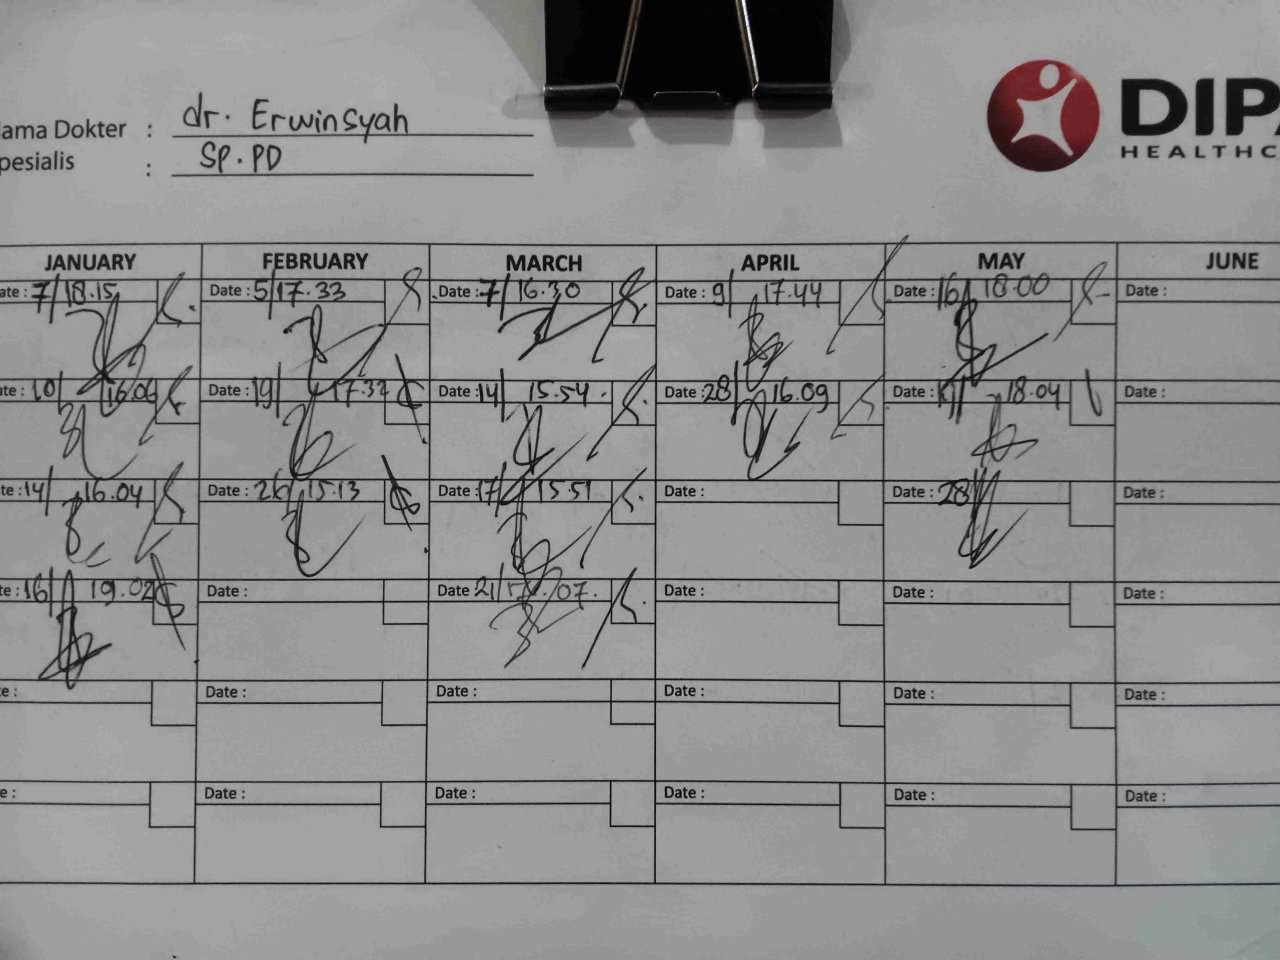 ama Dokter : dr. Erwinsyah
pesialis : SP.PD
DIPA
HEALTHC
JANUARY FEBRUARY MARCH APRIL MAY JUNE
ate : 7/ 18.15 Date : 5/ 17.33 Date : 7/ 16.30 Date : 9/ 17.44 Date : 16/ 18.00 Date :
te : 10/ 16.09 Date : 19/ 17.32 Date : 14/ 15.54 Date : 28/ 16.09 Date : 18.04 Date :
te : 14/ 16.04 Date : 26/ 15.13 Date : 17/ 15.51 Date : Date : 28/ Date :
te : 16/ 19.02 Date : Date 21/ 17.07. Date : Date : Date :
e : Date : Date : Date : Date : Date :
e : Date : Date : Date : Date : Date :